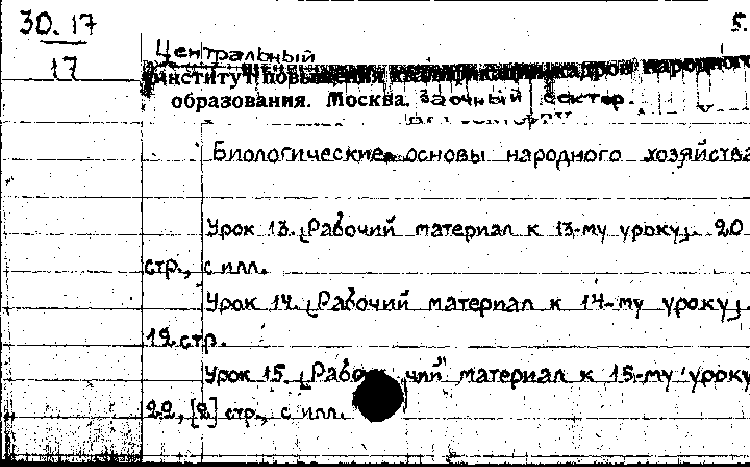 30.17 5.
17
Центральный
институт повышения квалификации кадров народного
образования. Москва. Заочный сектор.
Биологические основы народного хозяйства
Урок 13. [Рабочий материал к 13-му уроку]. 20
стр., с илл.
Урок 14. [Рабочий материал к 14-му уроку].
19 стр.
Урок 15. [Рабочий материал к 15-му уроку
22, [2] стр., с илл.